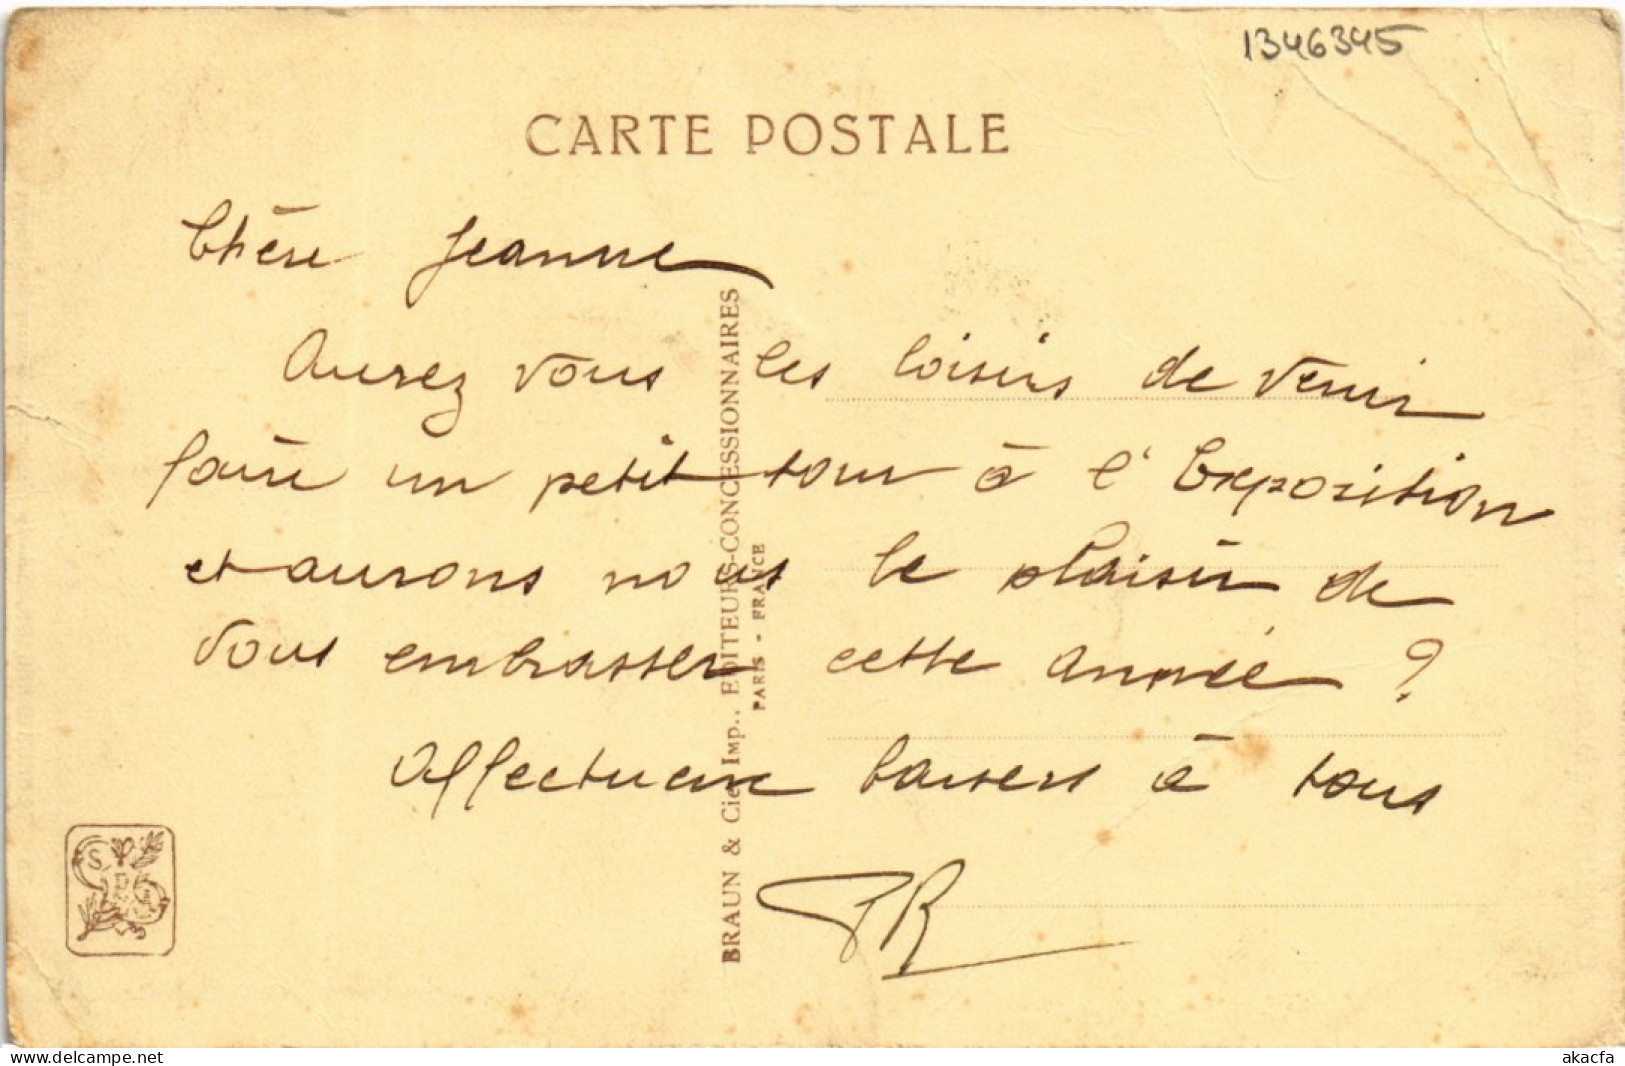 1346345
CARTE POSTALE
Chère Jeanne
Aurez vous les loisirs de venir
faire un petit tour à l'Exposition
et aurons nous le plaisir de
vous embrasser cette année ?
Affectueux baisers à tous
BRAUN & Cie, Imp.. EDITEURS-CONCESSIONNAIRES
PARIS - FRANCE
delcampe.net
akacfa